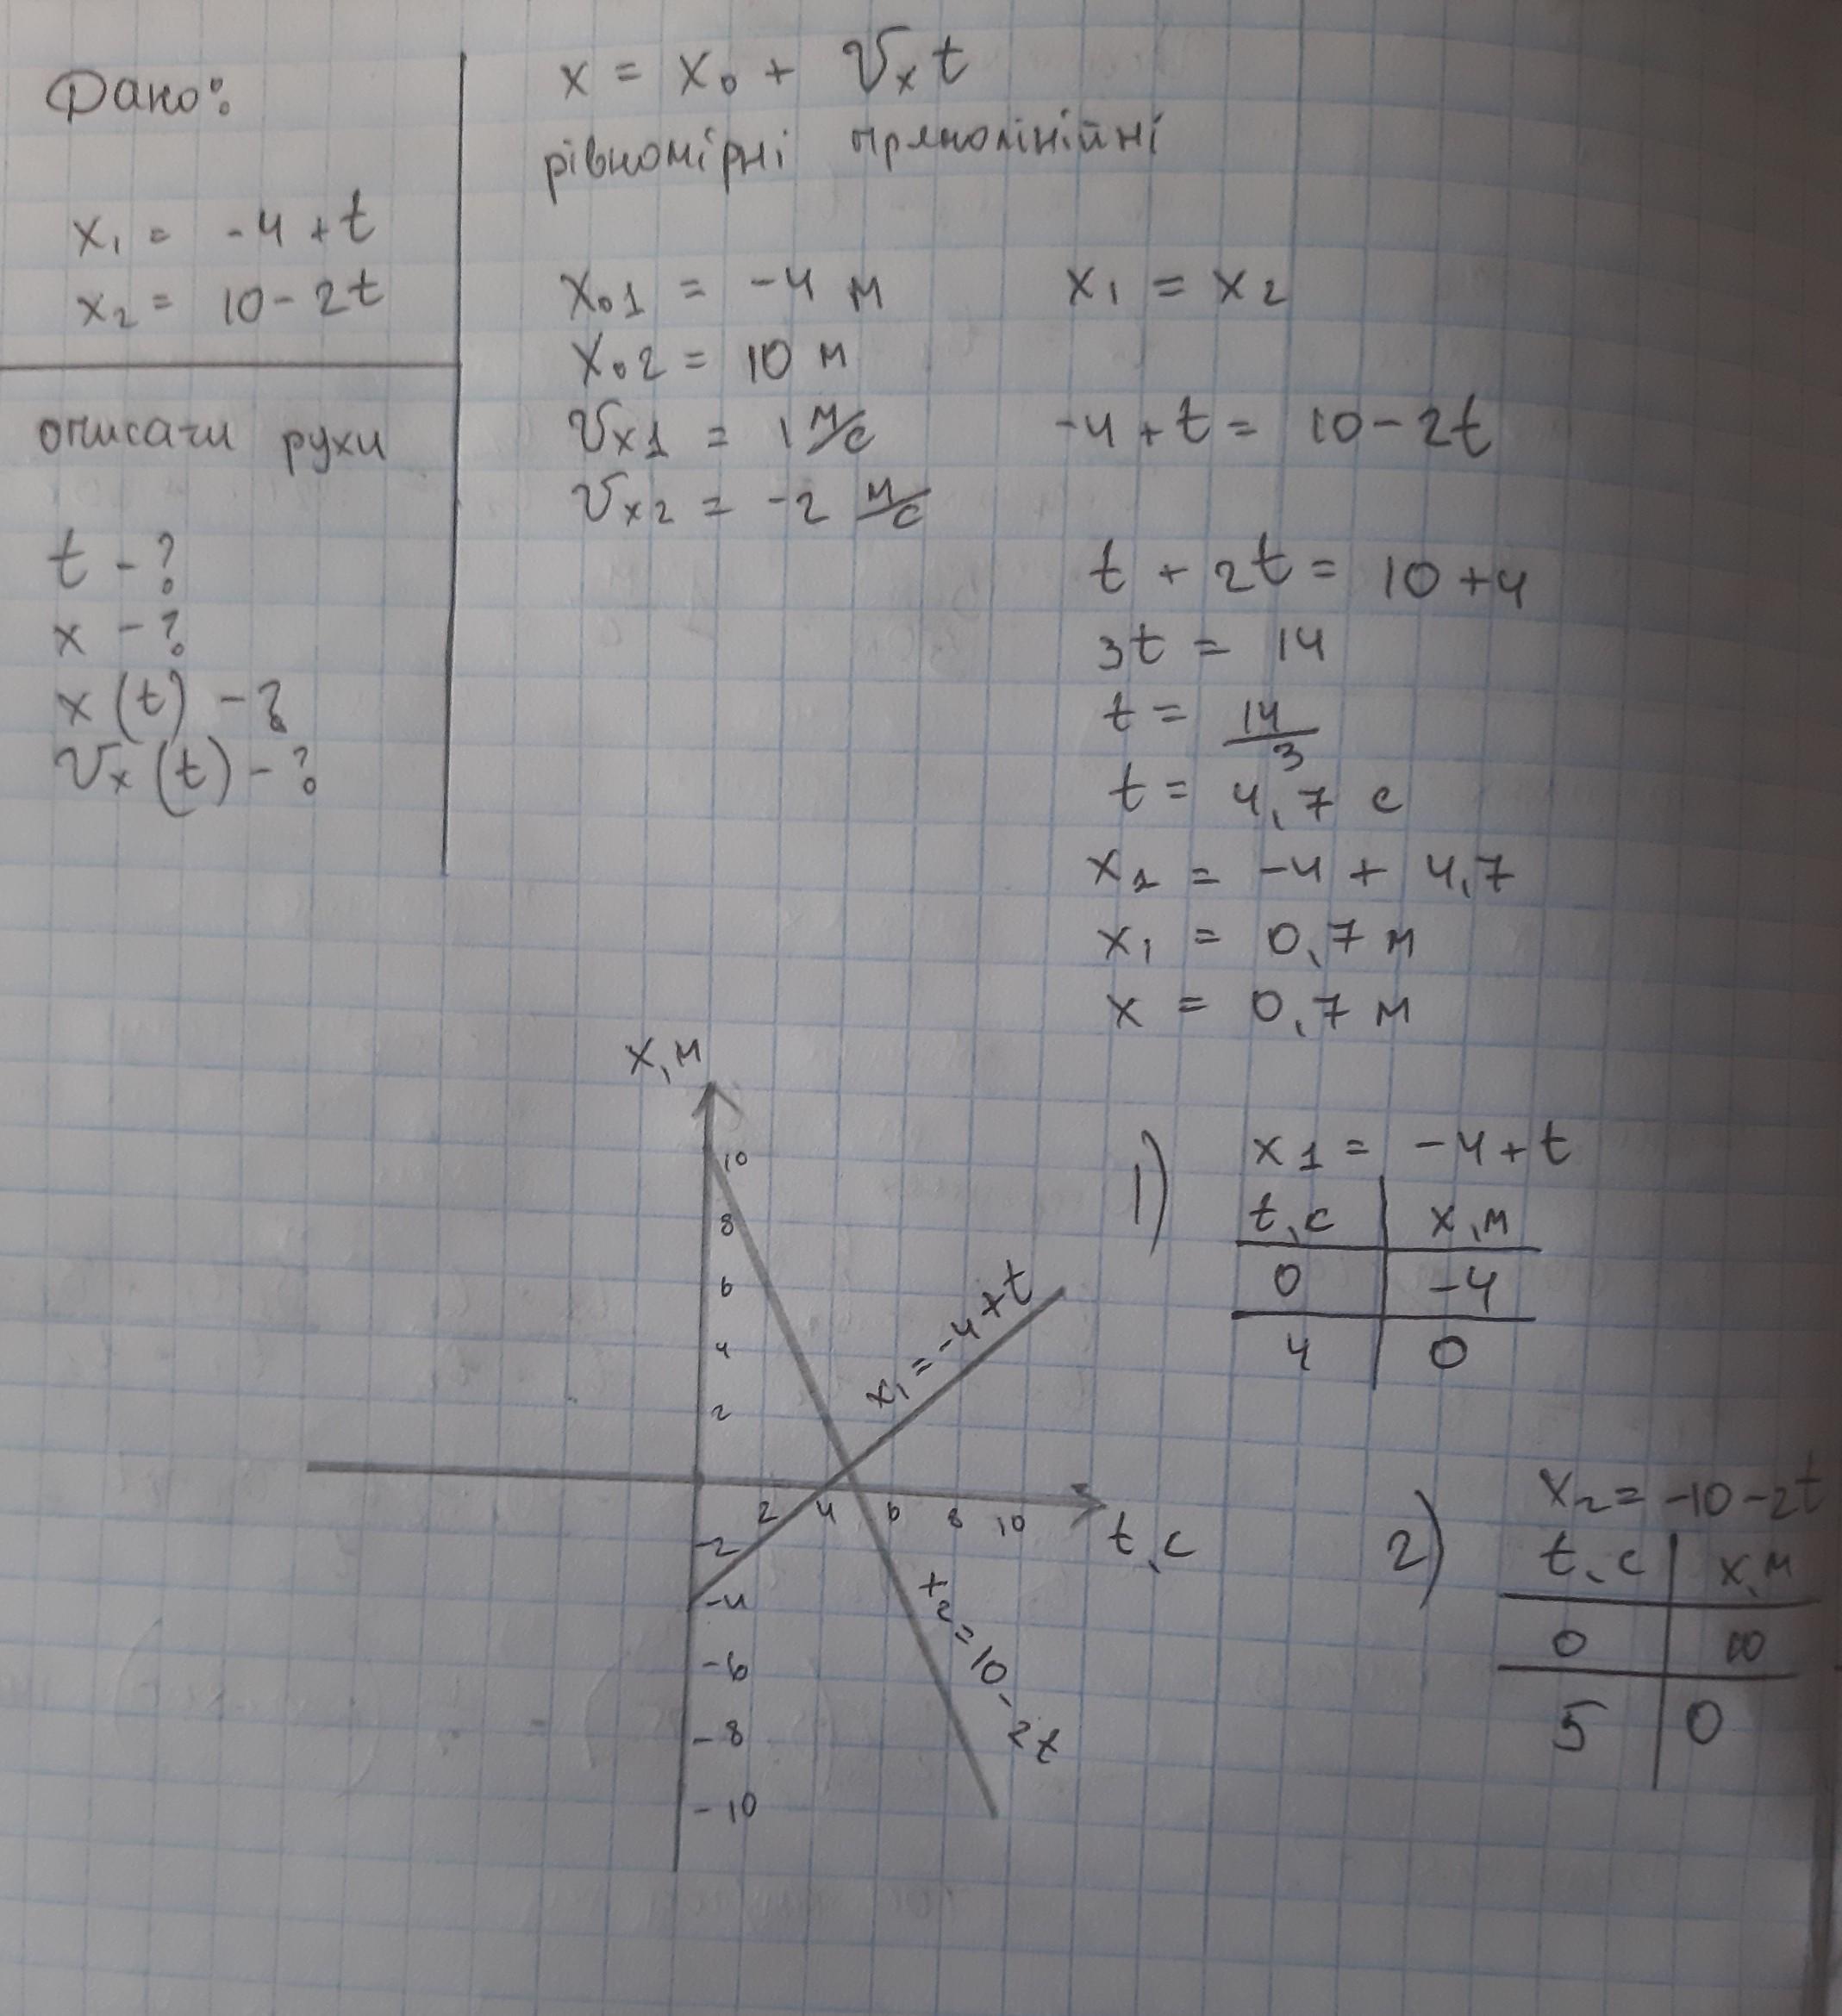 Дано:
x₁ = -4 + t
x₂ = 10 - 2t
описати рухи
t - ?
x - ?
x(t) - ?
Vx(t) - ?
x = x₀ + Vx t
рівномірні прямолінійні
x₀1 = -4 м
x₀2 = 10 м
Vx1 = 1 м/с
Vx2 = -2 м/с
x₁ = x₂
-4 + t = 10 - 2t
t + 2t = 10 + 4
3t = 14
t = 14/3
t = 4,7 с
x₁ = -4 + 4,7
x₁ = 0,7 м
x = 0,7 м
x, м
10
8
6
4
2
-2
-4
-6
-8
-10
2 4 6 8 10
t, с
x₁ = -4 + t
x₂ = 10 - 2t
1) x1 = -4 + t
t, с | x, м
0 | -4
4 | 0
2) x₂ = -10 - 2t
t, с | x, м
0 | 10
5 | 0